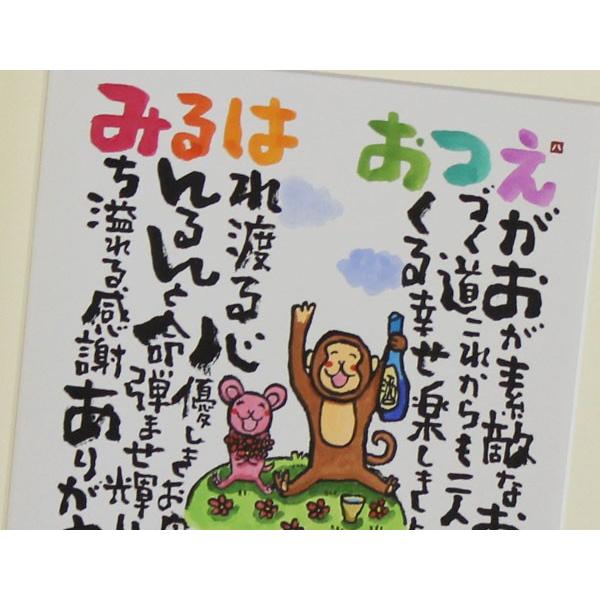 えがおが素敵なお
つづく道これからも二人
おくる幸せ楽しき
はれ渡る心優しきお
るんるんと命弾ませ輝
みち溢れる感謝ありが
酒